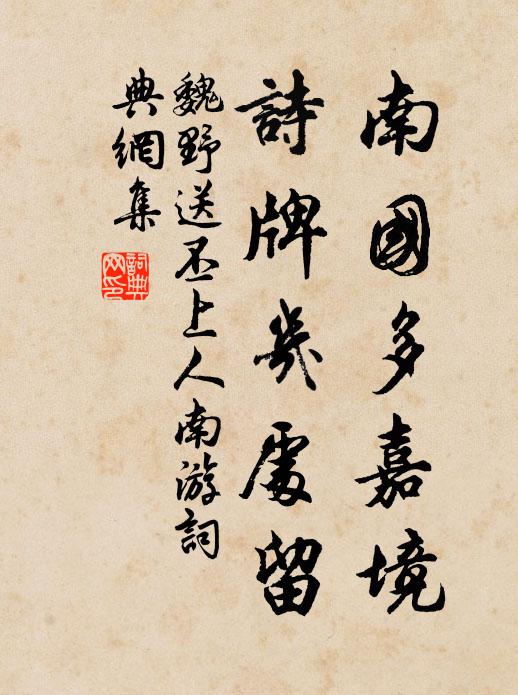 南國多嘉境
詩牌幾處留
魏野送丕上人南游詞
典網集
詞典網印